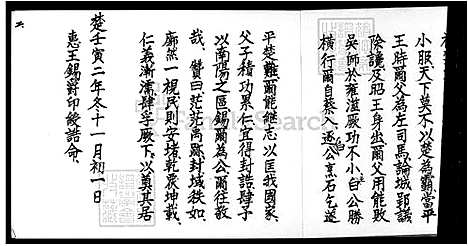 小服天下莫不以楚為霸當平
王時爾父為左司馬諭城郢誥
除讒及昭王身坐爾父用能敗
吳師於雍澨厥功不小白公勝
橫行爾自蔡入逐白公烹石乞遂
平楚難爾能繼志以匡我國家
父子積功累仁宜得封誥肆子
以南陽之區錫爾為公爾往敬
哉贊曰茫茫禹跡封域秩如
廓然一視民則安堵乾覆坤載
仁義漸濡肆孚厥下以奠其居
楚壬寅二年冬十一月初一日
惠王錫爵印綬誥命